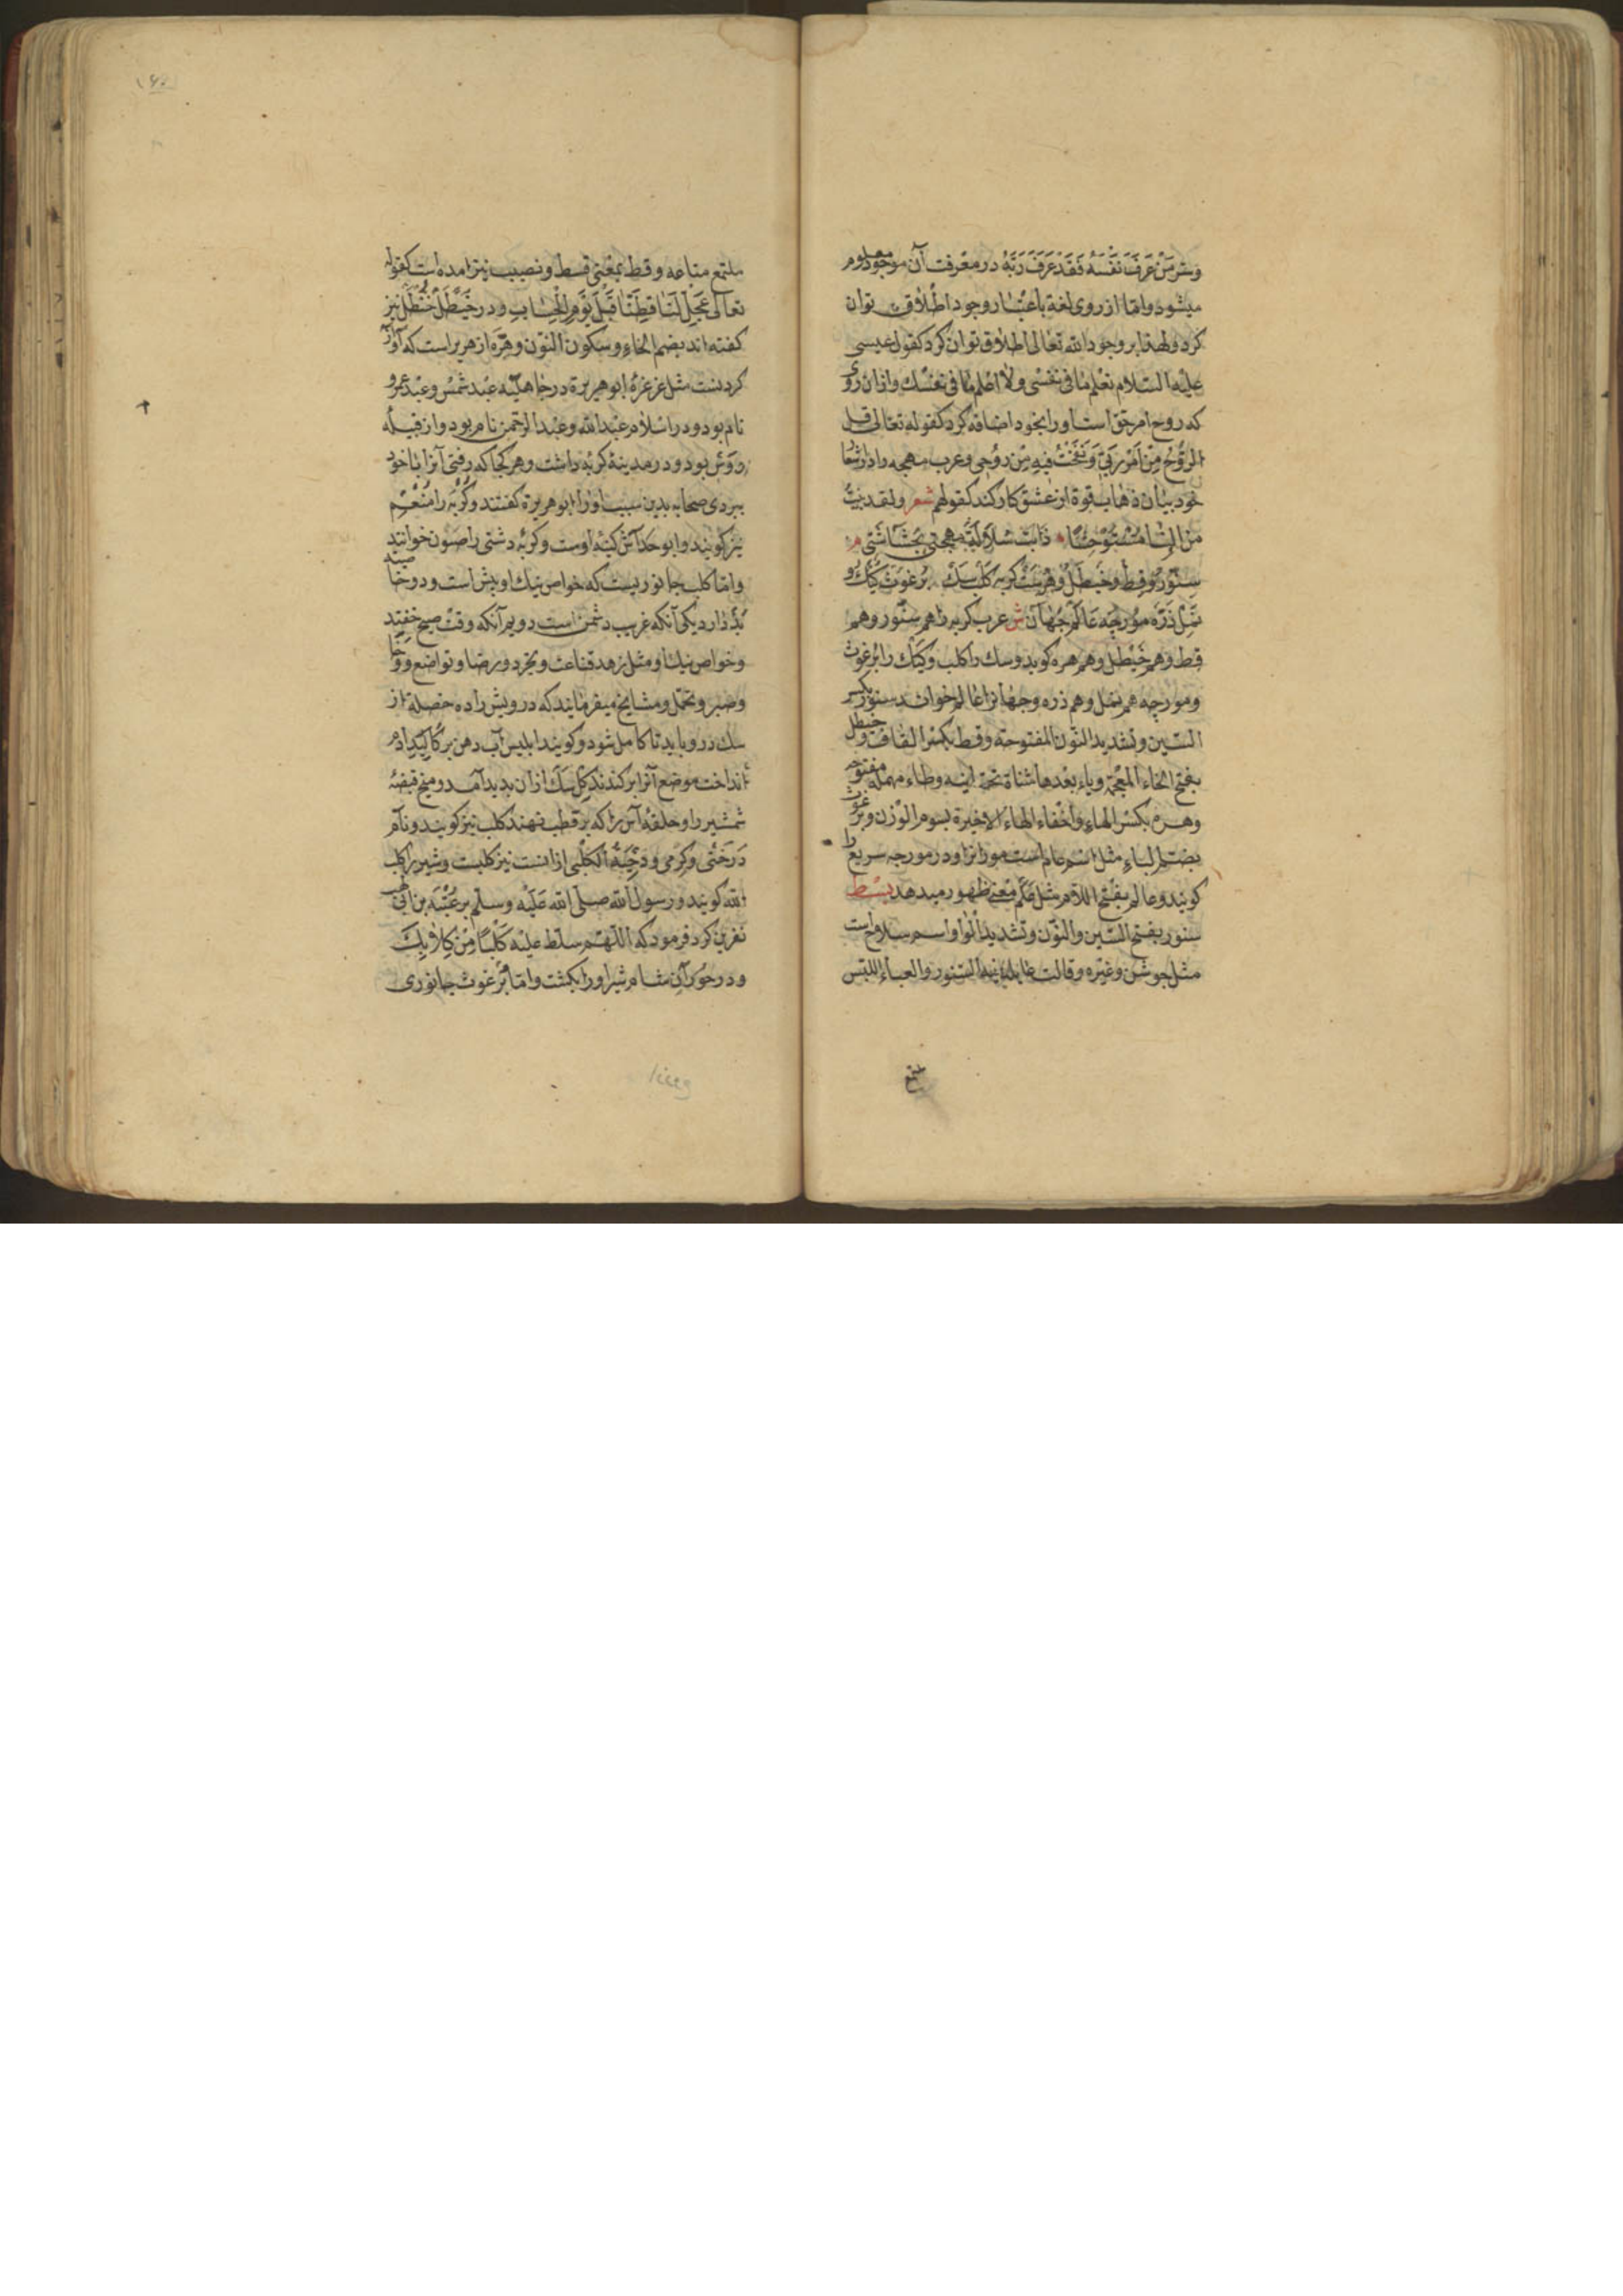 وسر من عرف نفسه فقد عرف ربه در معرفت آن موجود معلوم
میشود و اما از روی لغة باعتبار وجود اطلاق توان
کرد و لهذا بر وجود الله تعالی اطلاق توان کرد کقول عیسی
علیه السلام تعلم ما فی نفسی ولا اعلم ما فی نفسك و ازان روی
که روح امر حق است او را بخود اضافه کرد کقوله تعالی قل
الروح من امر ربی و نفخت فیه من روحی و عرب مهجه را در اشعار
خود بیان ذهاب قوة از عشق کار کنند کقولهم شعر ولقد
ذابت مهجتی م
سنور و قط و خیطل و هرت گربه کلب سك برغوث کیك و
نمل ذره مورچه عالم جهان ش عرب کربه را هم سنور و هم
قط و هم خیطل و هم هره کوید و سك را کلب و کیك را برغوث
و مورچه هم نمل و هم ذره و جهانرا عالم خوانند سنور بکسر
السین و تشدید النون المفتوحة و قط بکسر القاف و خیطل
بفتح الخاء المعجمة و یاء بعدها مثناة تحتانیه و طاء مهمله مفتوحه
و هره بکسر الهاء و اخفاء الهاء الاخیرة لسوم الوزن و برغوث
بضم الباء مثل اسم عام است مورانرا و در مورچه سریع را
کویند و عالم بفتح اللام مثل معنی ظهور میدهد بسط
سنور بفتح السین والنون و تشدید الواو اسم سلاح است
مثل جوشن و غیره و قالت السنور والعباء اللبس
ملتمع
ملتمع متاعه و قط بمعنی قسط و نصیب نیز آمده است کقوله
تعالی عجل لنا قطنا قبل یوم الحساب و در خیطل خنطل نیز
کفته اند بضم الخاء و سکون النون و هره از هریر است که آواز
کردنست مثل غرغره ابو هریرة در جاهلیه عبد شمس و عبد عمرو
نام بود و در اسلام عبد الله و عبد الرحمن نام بود و از قبیله
دوس بود و در مدینه کربه داشت و هر کجا که رفتی آنرا با خود
ببردی صحابه بدین سبب او را ابو هریرة کفتند و کربه را
نیز کویند و ابو خداش کنیه اوست و کربه دشتی را خوانند
و اما کلب جانوریست که خواص نیك او بیش است و دو خاصیت
بد دارد یکی آنکه غریب دشمن است دویم آنکه وقت صبح خفتد
و خواص نیك او مثل زهد قناعت و تجرد و رضا و تواضع و وفا
و صبر و تحمل و مشایخ میفرمایند که درویش را ده خصلة از
سك درو باید تا کامل شود و کویند ابلیس آب دهن بر آدم
انداخت موضع آنرا بر کندند سك ازان پدید آمد و میخ قبضه
شمشیر را و حلقه آس را که بر قطب نهند کلب نیز کویند و نام
درختی و کرمی و دحیة الکلبی ازانست نیز کلبت و شیر را کلب
الله کویند و رسول الله صلی الله علیه و سلم بر عتبة بن ابی لهب
نفرین کرد فرمود که اللهم سلط علیه کلبا من کلابك
و در شام شیر او را بکشت و اما برغوث جانوری
۱۶۰